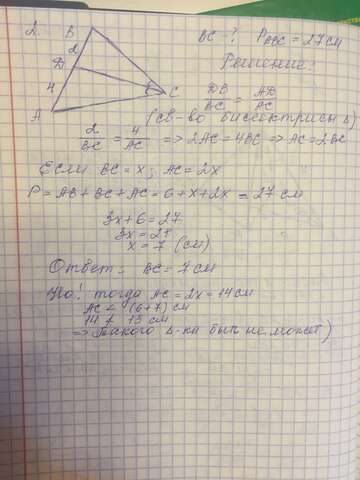 2. B BC -? P ABC = 27 см
2 Решение:
D
4 C DB/BC = AD/AC
A (св-во биссектрисы Δ)
2/BC = 4/AC => 2AC = 4BC => AC = 2BC
Если BC = x; AC = 2x
P = AB + BC + AC = 6 + x + 2x = 27 см
3x + 6 = 27
3x = 21
x = 7 (см)
Ответ: BC = 7 см
Но! тогда AC = 2x = 14 см
AC < (6+7) см
14 ≮ 13 см
=> такого Δ-ка быть не может)